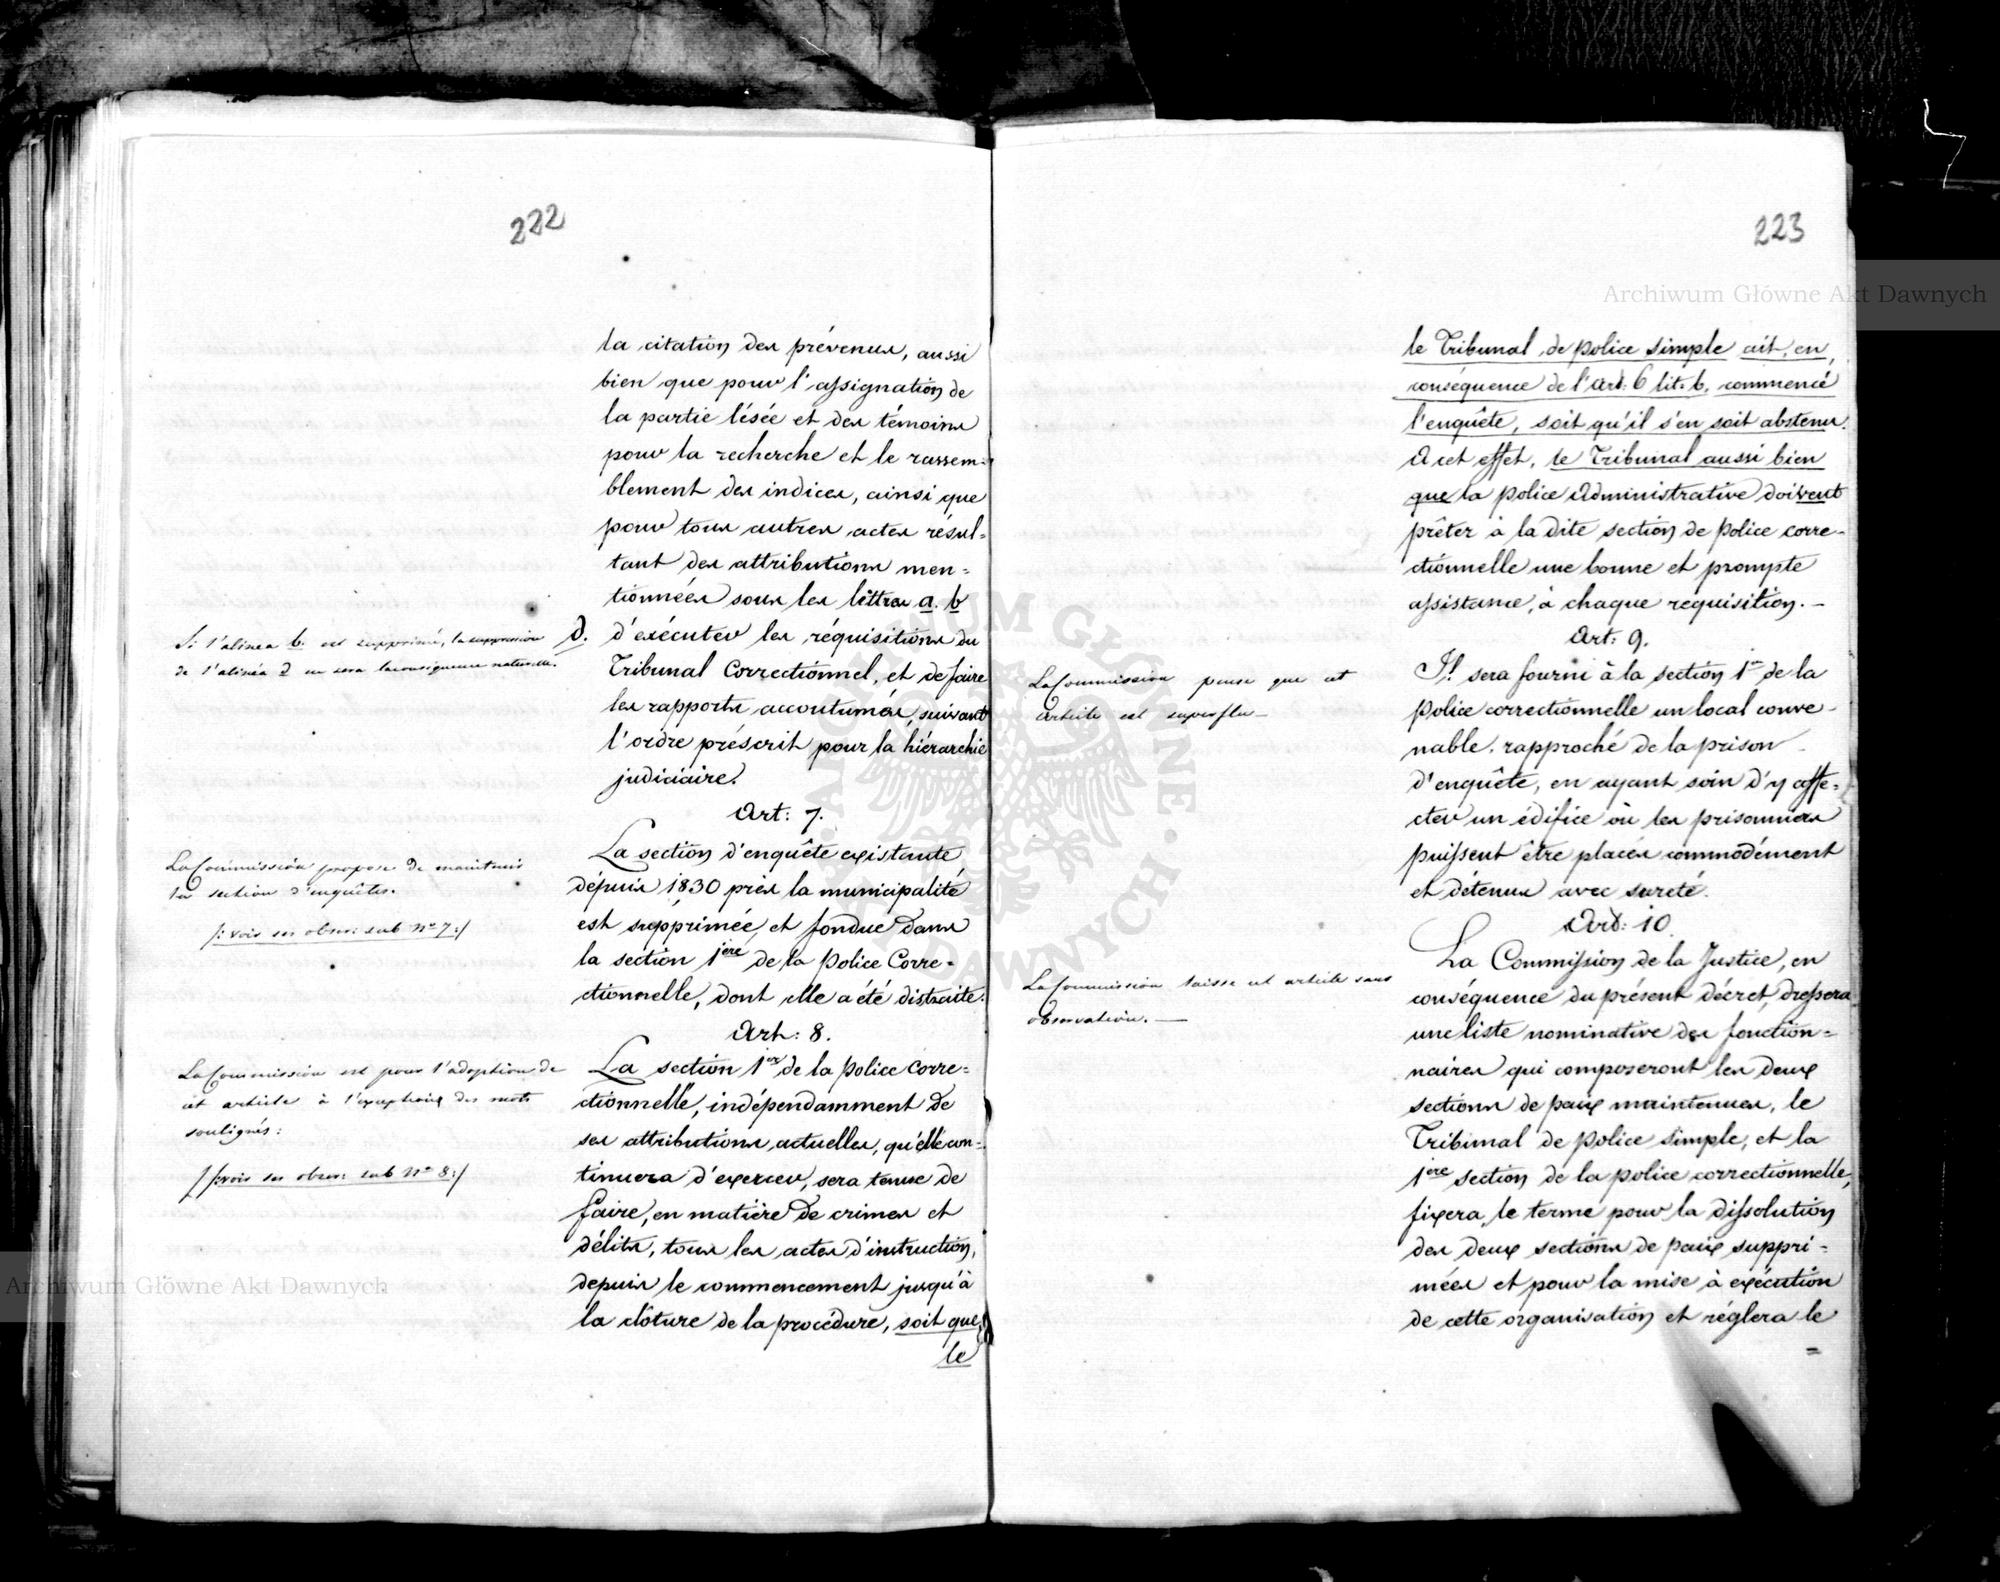 222
la citation des prévenus, aussi
bien que pour l'assignation de
la partie lésée et des témoins
pour la recherche et le rassem=
blement des indices, ainsi que
pour tous autres actes résul=
tant des attributions men=
tionnées sous les lettres a. b
Si l'alinea b. est supprimé, la suppression
de l'alinéa d en sera la consequence naturelle.
d. d'exécuter les réquisitions du
Tribunal Correctionnel, et de faire
les rapports accoutumés, suivant
l'ordre préscrit pour la hiérarchie
judiciaire.
Art: 7.
La Commission propose de maintenir
la section d'enquêtes.
/: voir ses obser: sub No 7:/
La section d'enquête existante
dépuis 1830 près la municipalité
est supprimée et fondue dans
la section 1ère de la Police Corre=
ctionnelle, dont elle a été distraite.
Art: 8.
La Commission est pour l'adoption de
cet article à l'exception des mots
soulignés:
/: voir ses obser: sub No 8:/
La section 1ère de la police corre=
ctionnelle, indépendamment de
ses attributions actuelles, qu'elle con=
tinuera d'exercer, sera tenue de
faire, en matière de crimes et
délits, tous les actes d'instruction,
depuis le commencement jusqu'à
la clôture de la procédure, soit que
le
223
le Tribunal de police simple ait, en
conséquence de l'art: 6 lit. b. commencé
l'enquête, soit qu'il s'en soit abstenu.
A cet effet, le Tribunal aussi bien
que la police administrative doivent
prêter à la dite section de police corre-
ctionnelle une bonne et prompte
assistance, à chaque requisition. –
Art: 9.
La Commission pense que cet
article est superflu –
Il sera fourni à la section 1re de la
police correctionnelle un local conve-
nable, rapproché de la prison
d'enquête, en ayant soin d'y affe=
cter un édifice où les prisonniers
puissent être placés commodément
et détenus avec sureté.
Art: 10.
La Commission laisse cet article sans
observation. —
La Commission de la Justice, en
conséquence du présent décret, dressera
une liste nominative des fonction=
naires qui composeront les deux
sections de paix maintenues, le
Tribunal de police simple, et la
1ère section de la police correctionnelle,
fixera le terme pour la dissolution
des deux sections de paix suppri=
mées et pour la mise à exécution
de cette organisation et réglera le
=
Archiwum Główne Akt Dawnych
Archiwum Główne Akt Dawnych
ARCHIWUM GŁÓWNE · AKT DAWNYCH ·